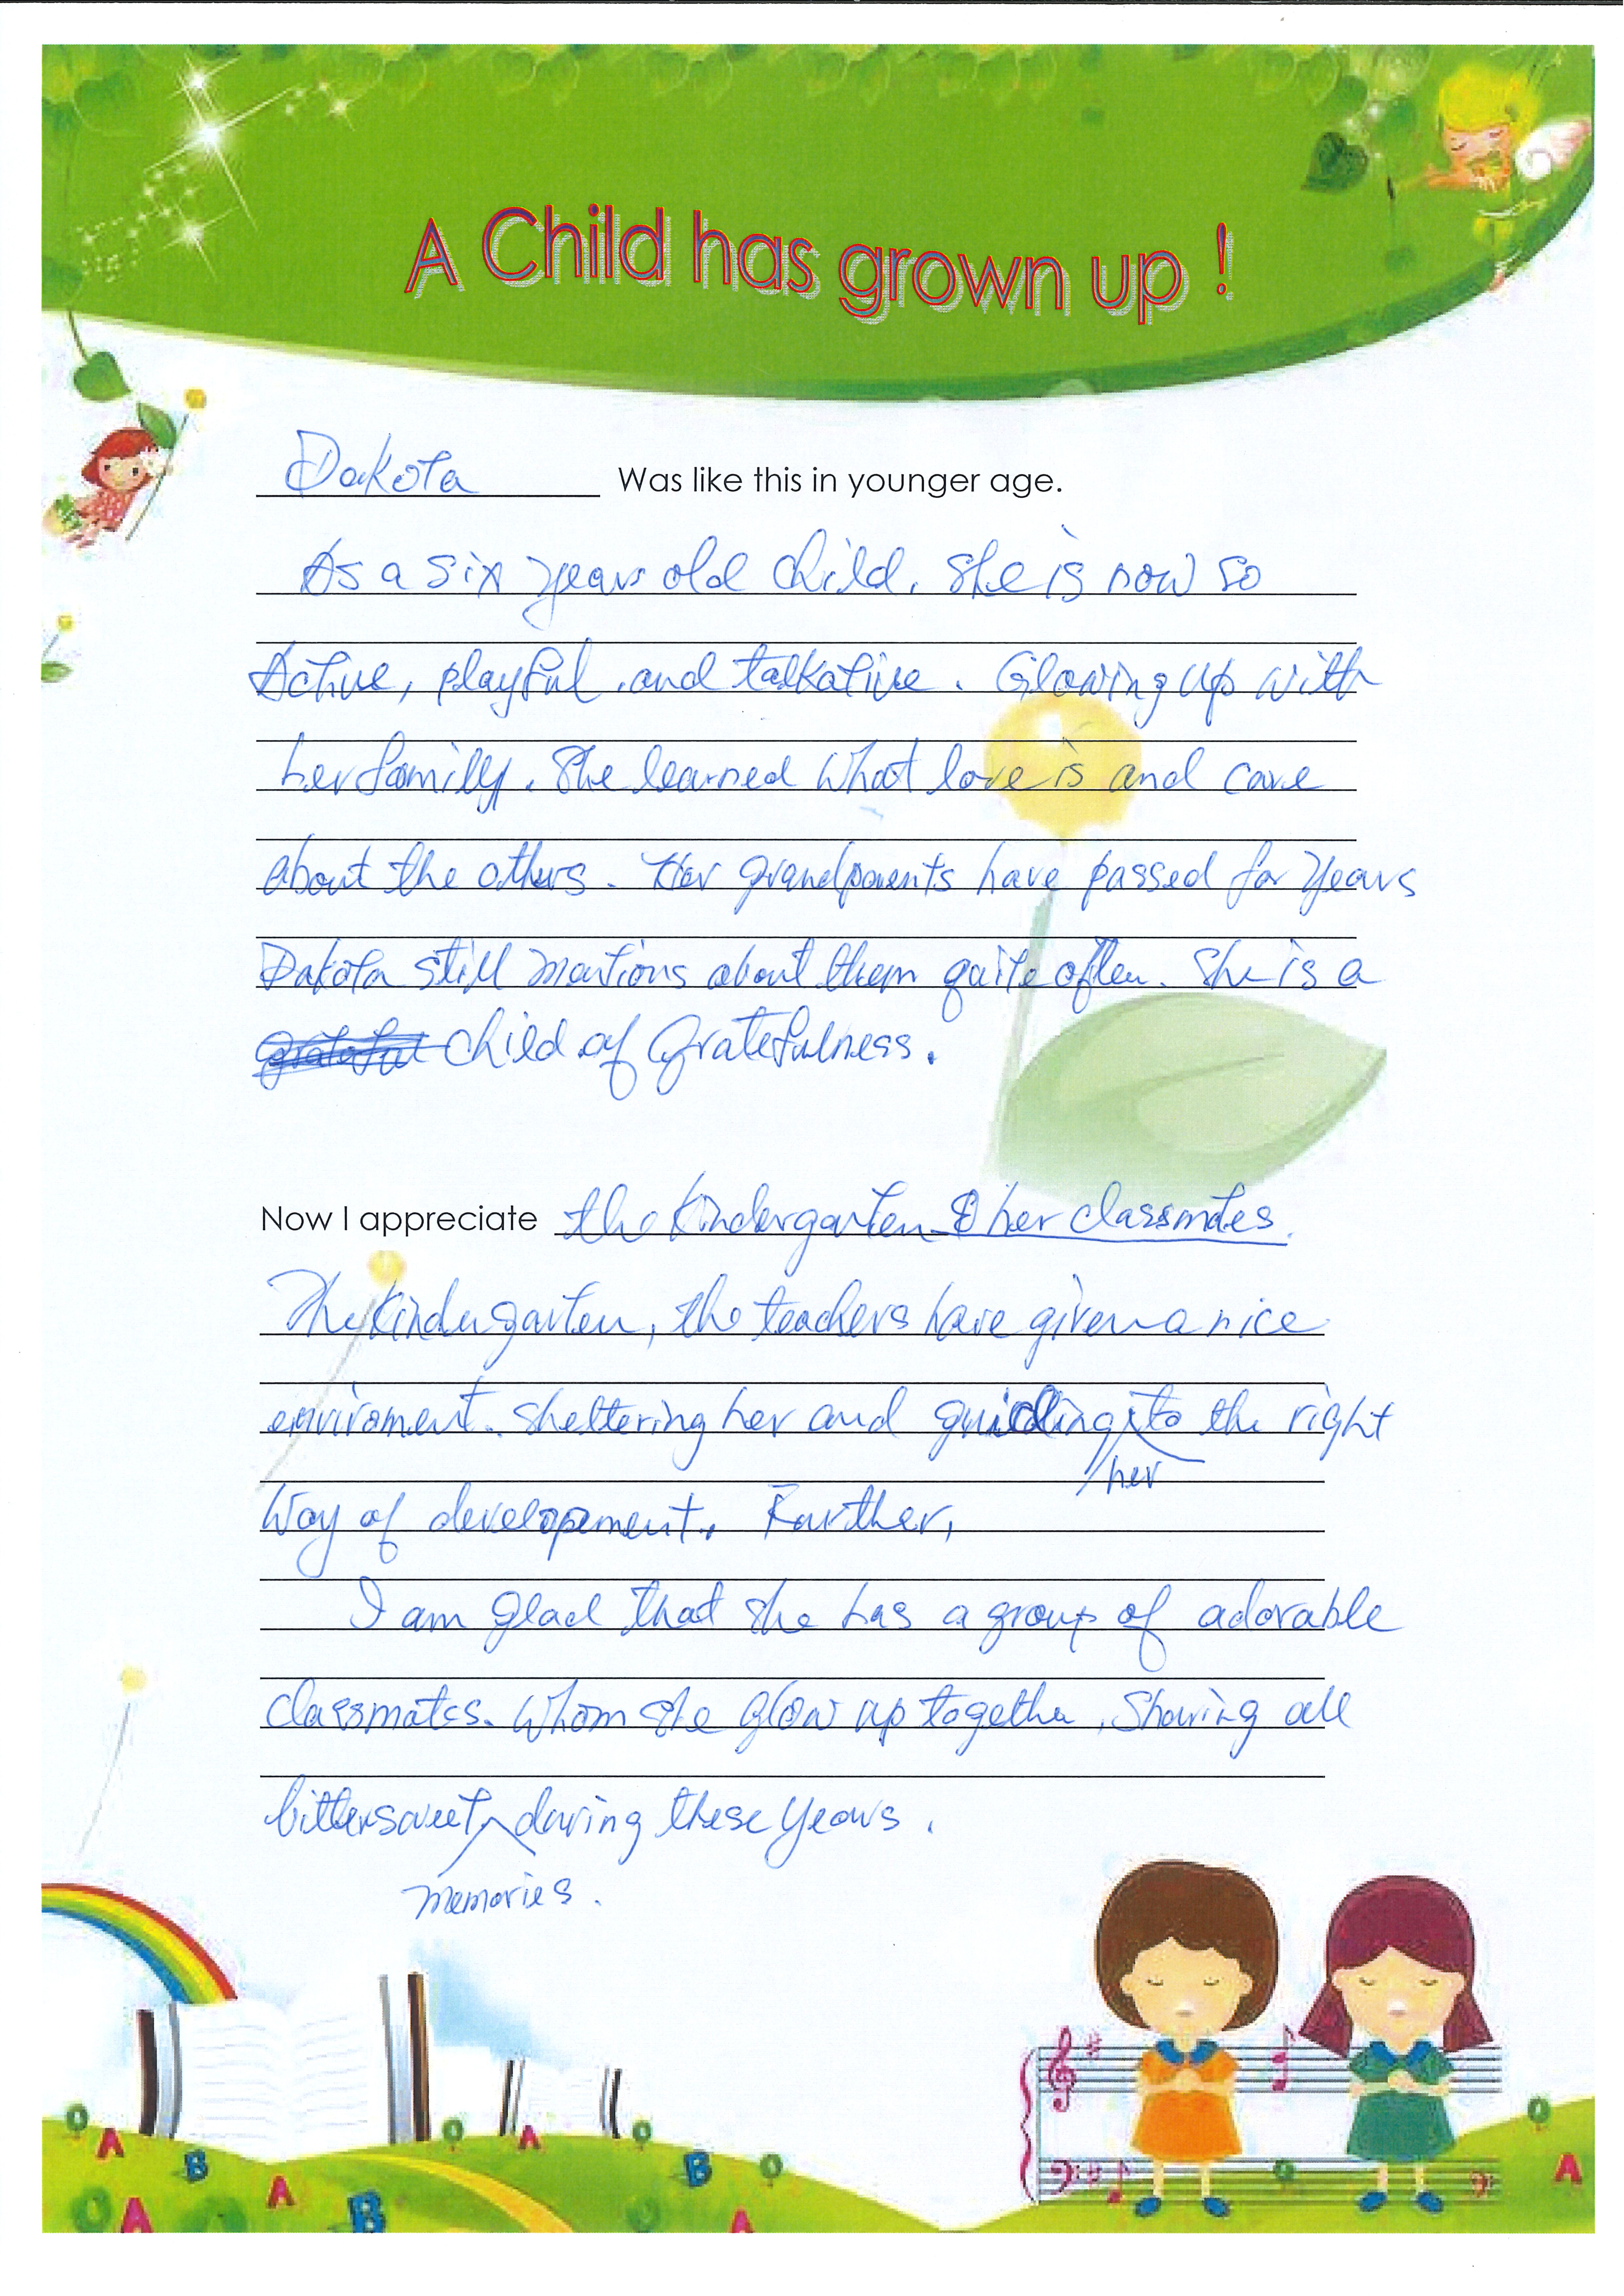 A Child has grown up !
Dakota Was like this in younger age.
As a six years old child, she is now so
Active, playful, and talkative. Glowing up with
her familly. She learned what love is and care
about the others. Her grandparents have passed for years
Dakota still mentions about them quite often. She is a
grateful child of Gratefulness.
Now I appreciate the kindergarten & her classmates.
The kindergarten, the teachers have given a nice
enviroment. sheltering her and guiding her to the right
way of development. Further,
I am glad that she has a group of adorable
classmates. Whom she glow up together, Sharing all
bittersweet memories. during these years.